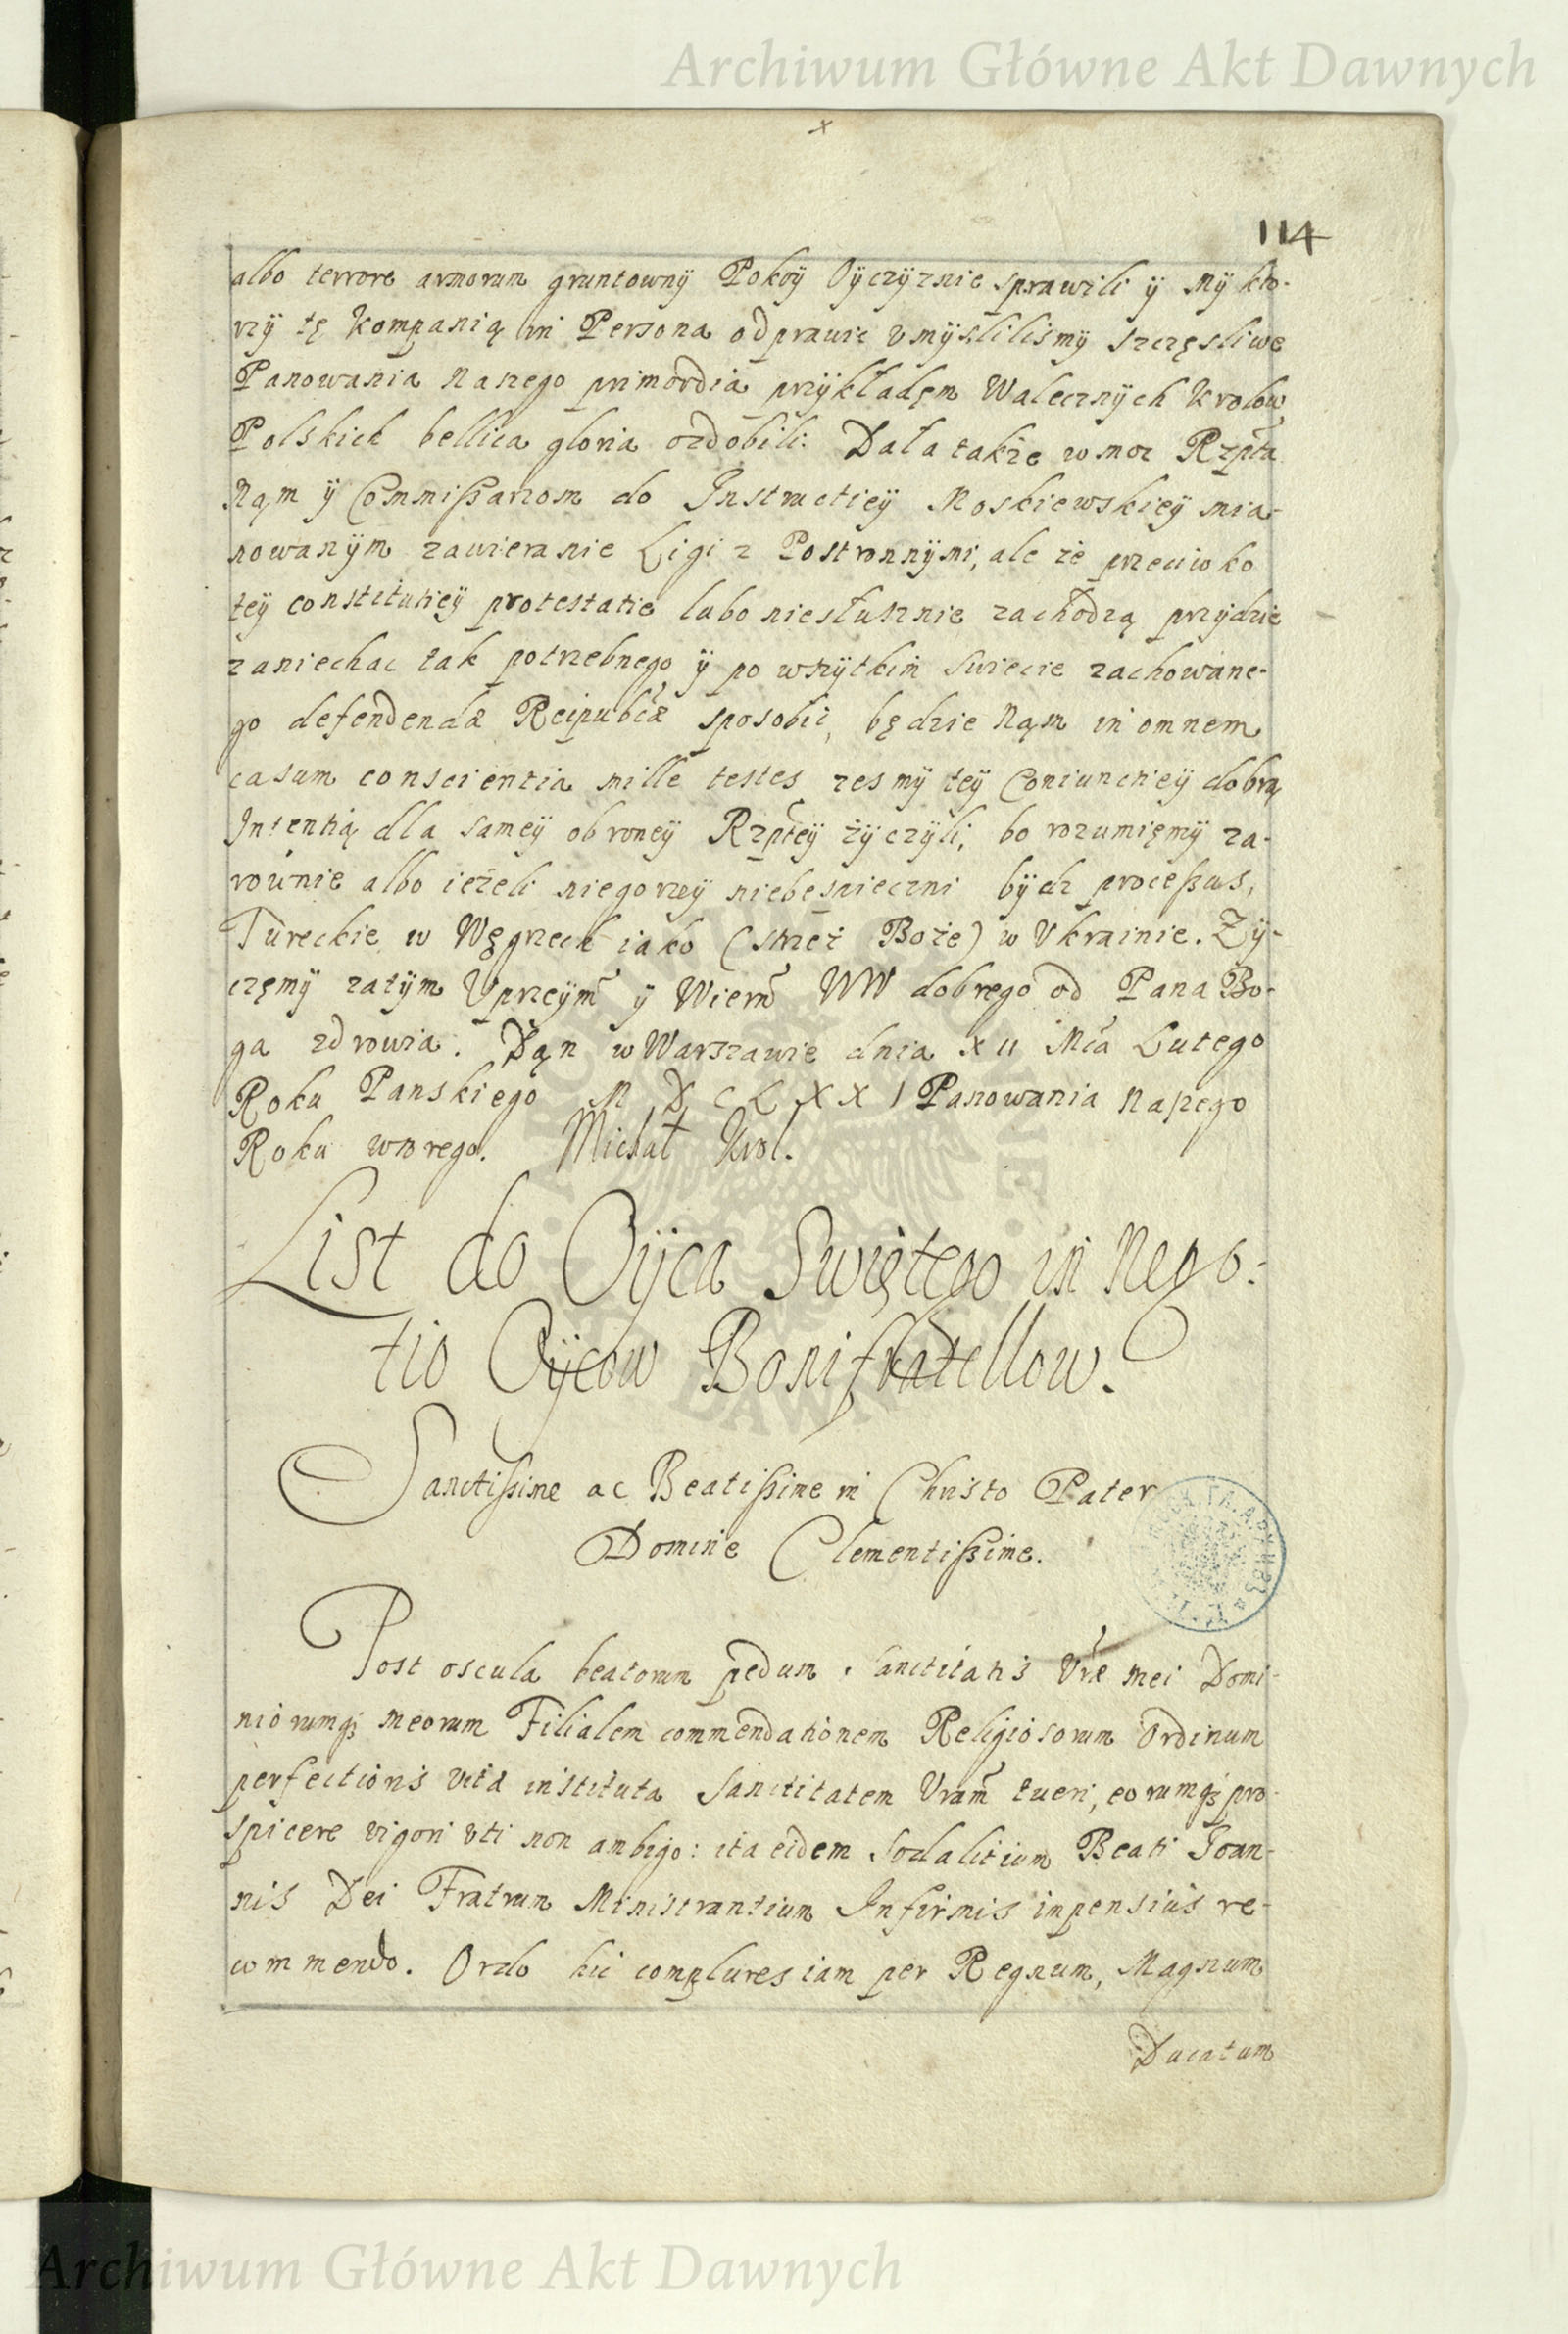 Archiwum Główne Akt Dawnych
114
albo terrore armorum gruntowny Pokoÿ Oÿczÿznie sprawili ÿ mÿ kto-
rzÿ tę kompanią in Persona odprawic vmÿslilismÿ szczęsliwe
Panowania naszego primordia przÿkładęm Walecznÿch Krolow
Polskich bellica gloria ozdobili. Dała także w moc Rzpta
nąm ÿ Commißarzom do Instructieÿ Moskiewskieÿ mia-
nowanÿm zawieranie Ligi z Postronnÿmi, ale że przeciwko
teÿ constitutieÿ protestatie lubo niesłusznie zachodzą przÿdzie
zaniechac tak potrzebnego ÿ po wszÿtkim swiecie zachowane-
go defendendæ Reipubcæ sposobu, będzie nąm in omnem
casum conscientia mille testes zes mÿ teÿ Coniunctieÿ dobrą
Intentią dla sameÿ obroneÿ Rzpteÿ życzÿli, bo rozumięmÿ za-
rownie albo ieżeli niegorzeÿ niebespieczni bÿdz proceßus,
Tureckie w Węgrzech iako (strzeż Boże) w Vkrainie. Zÿ-
częmÿ zatÿm Vprzeÿm ÿ Wierm WW dobrego od Pana Bo-
ga zdrowia. Dąn w Warszawie dnia XII Mca Lutego
Roku Panskiego M D C L X X I Panowania naszego
Roku wtorego. Michał Krol.
List do Oÿca Swiętego in Nego-
tio Oÿcow Bonifratellow.
Sanctißime ac Beatißime in Christo Pater
Domine Clementißime.
Post oscula beatorum pedum Sanctitatis Vræ mei Domi-
niorumq; meorum Filialem commendationem Religiosorum Ordinum
perfectioris vitæ instituta Sanctitatem Vram tueri, eorumq; pro-
spicere vigori vti non ambigo: ita eidem Sodalitium Beati Joan-
nis Dei Fratrum Ministrantium Infirmis inpensius re-
commendo. Ordo hic complures iam per Regnum, Magnum
Ducatum
Archiwum Główne Akt Dawnych